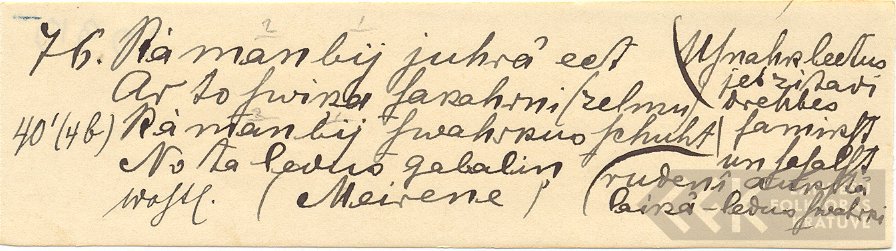 76. Kà man bij juhrâ eet
Ar to swira sakahrni (zelmu)
40'(4b) Kà man bij swahrkus schuht
No ta ledus gabalin,
(Meirene)
(Usnahk leetus
jeb zitadi
drehbes
samirkst
un sasalst
rudenî aukstâ
laikâ - ledus swahrki
FOLKLORAS
KRĀTUVE